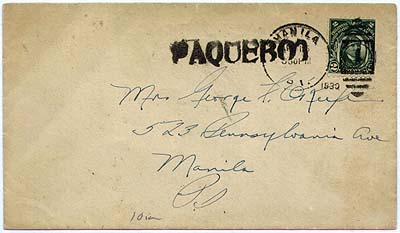 PAQUEBOT
MANILA
P.I.
1930
Mrs George
523 Pennsylvania Ave
Manila
P.I.